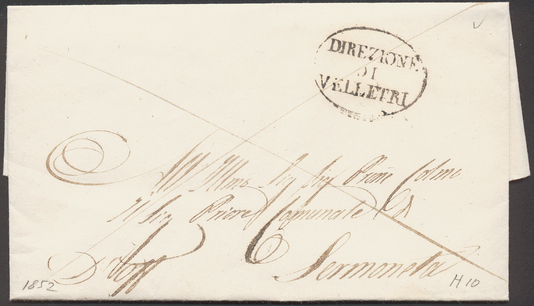 DIREZIONE
DI
VELLETRI
All' Illmo Sig Sig Proñ Colmo
Il Sig Priore Comunale di
Sermoneta
1852
H 10